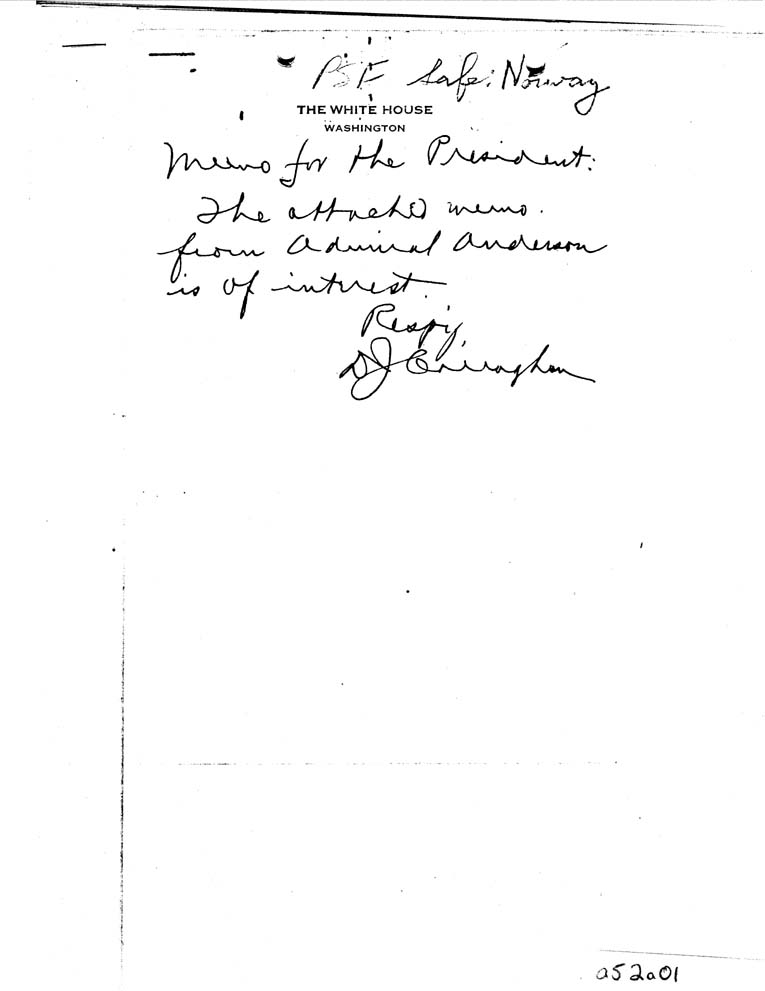 PSF Safe: Norway
THE WHITE HOUSE
WASHINGTON
Memo for the President:
The attached memo.
from Admiral Anderson
is of interest.
Respy,
DJ Callaghan
a52a01